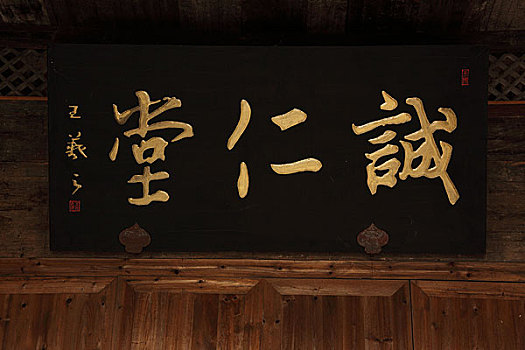 誠仁堂
王羲之